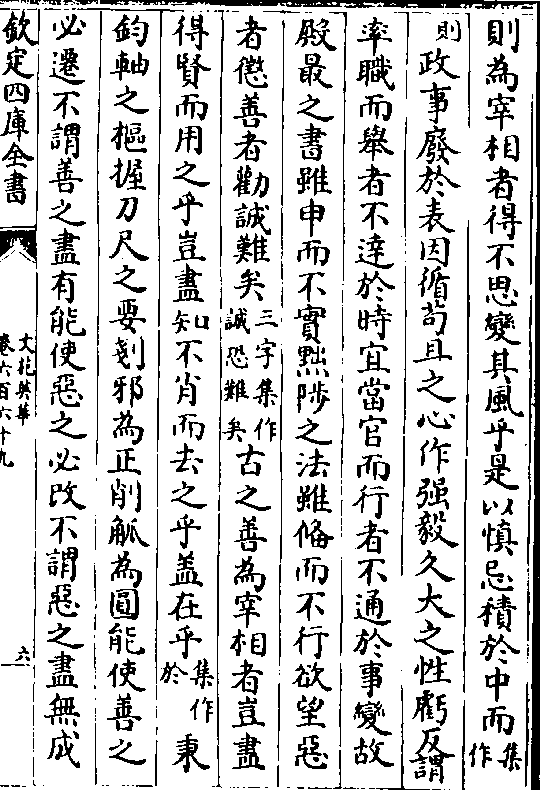 則為宰相者得不思變其風乎是以慎忌積於中而集作
則政事廢於表因循苟且之心作强毅久大之性虧反謂
率職而舉者不達於時宜當官而行者不通於事變故
殿最之書雖申而不實黜陟之法雖備而不行欲望惡
者懲善者勸誠難矣三字集作誠恐難矣古之善為宰相者豈盡
得賢而用之乎豈盡知不肖而去之乎盖在乎集作於秉
鈞軸之樞握刀尺之要剗邪為正削觚為圓能使善之
必遷不謂善之盡有能使惡之必改不謂惡之盡無成
欽定四庫全書
文苑英華
卷六百六十九
六